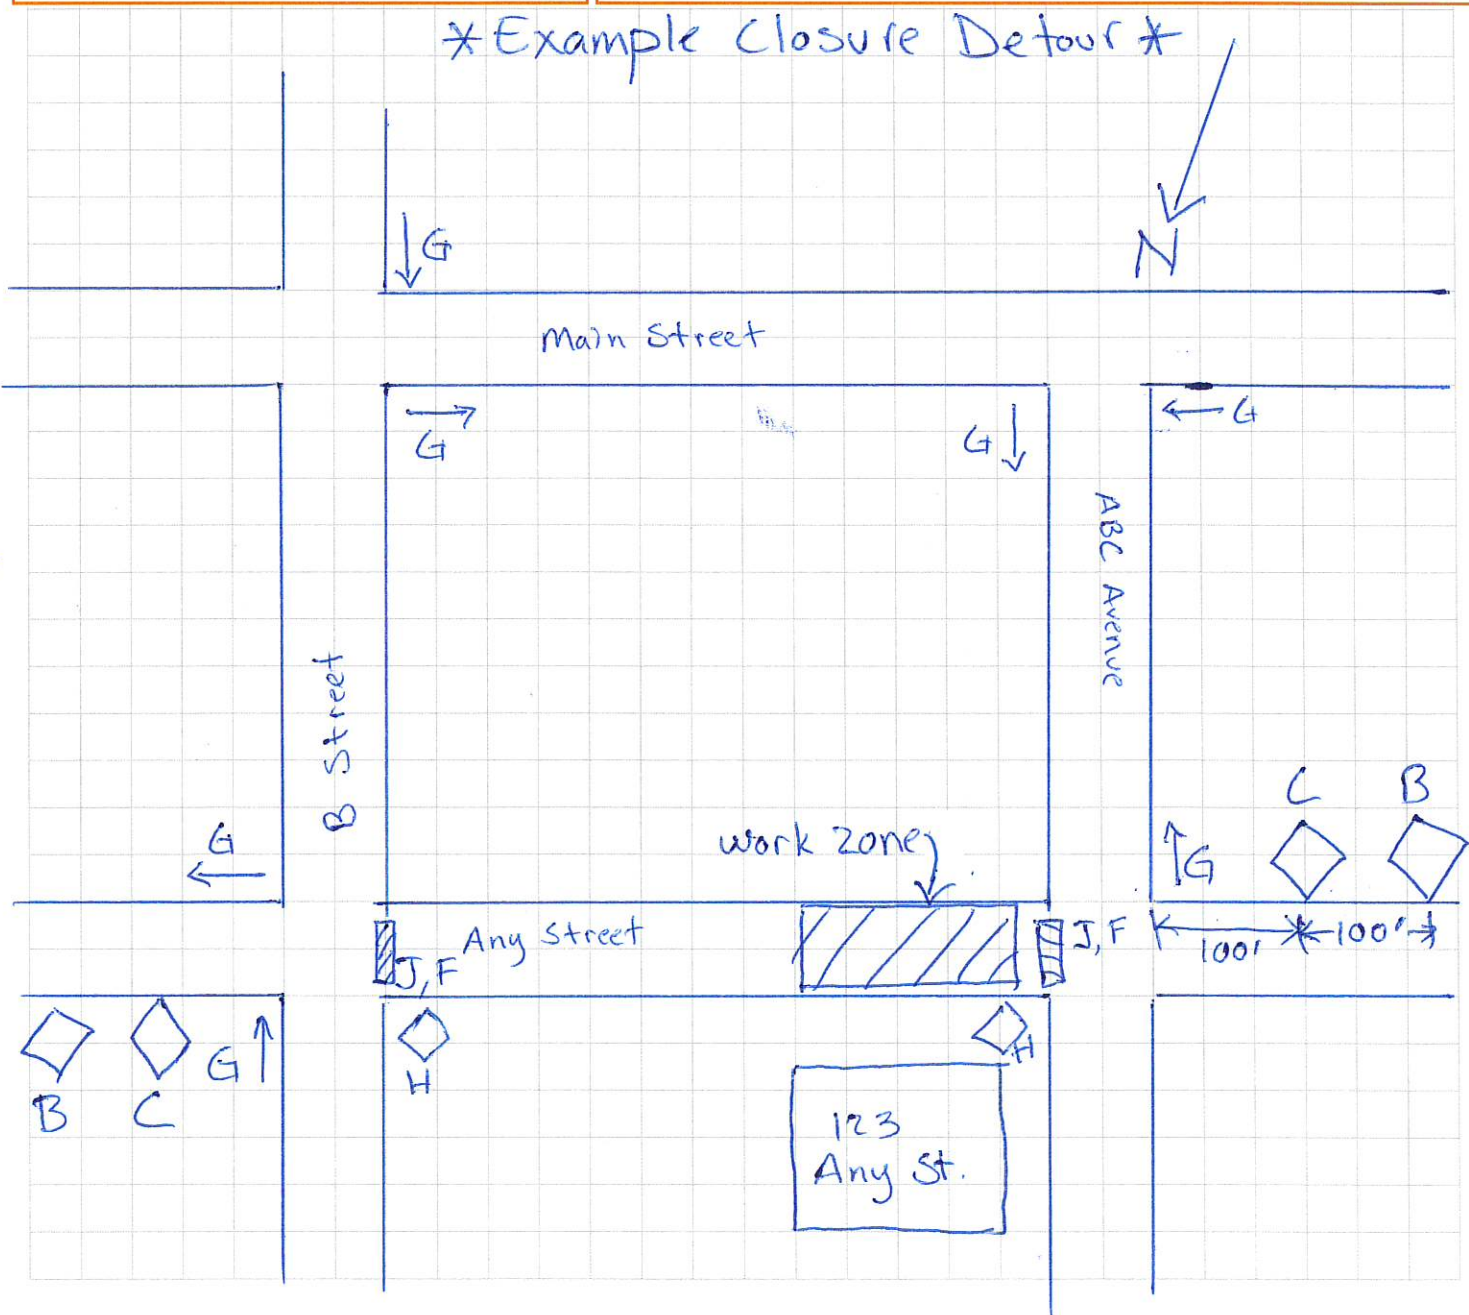 *Example Closure Detour*
G
N
Main Street
G
G
G
ABC Avenue
B Street
C
B
G
work zone
G
J, F
Any Street
J, F
100'
100'
G
H
H
B
C
123
Any St.